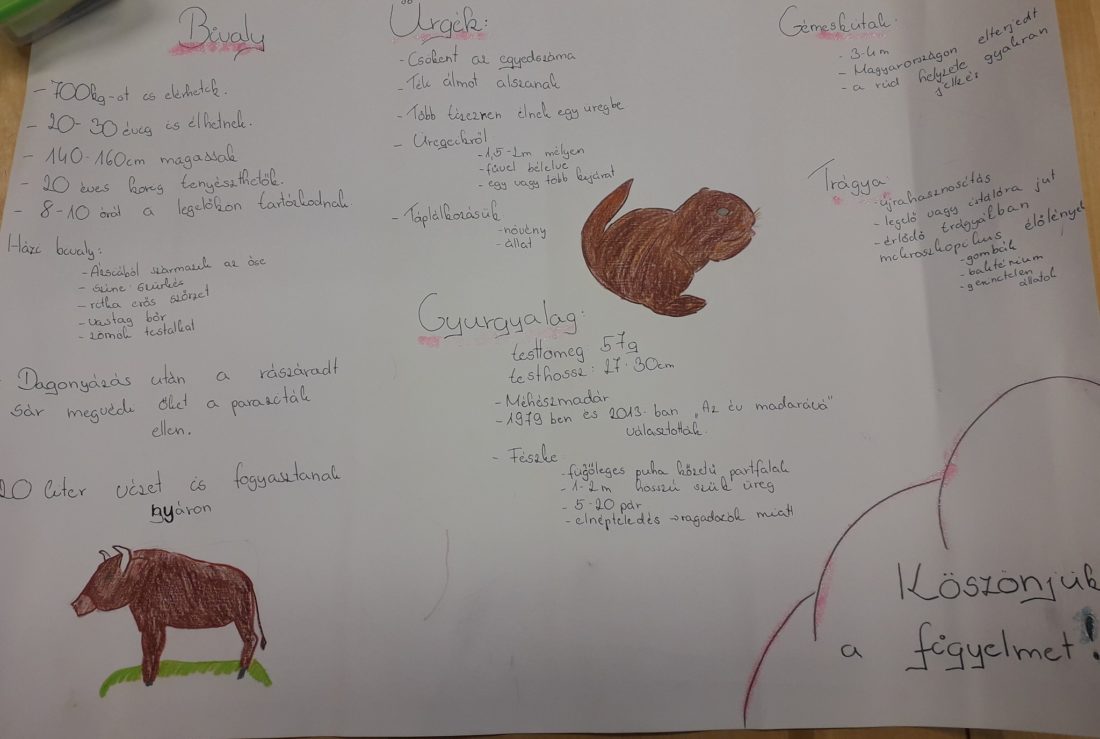 Bivaly
- 700kg-ot is elérhetik.
- 20-30 évig is élhetnek.
- 140-160cm magassak
- 20 éves korig tenyészthetők.
- 8-10 órát a legelőkön tartózkodnak.
Házi bivaly:
- Ázsiából származik az őse
- színe: szürkés
- ritka erős szőrzet
- vastag bőr
- zömök testalkat
Dagonyázás után a rászáradt
sár megvédi őket a paraziták
ellen.
liter vizet is fogyasztanak
nyáron
Ürgék:
- Csökent az egyedszáma
- Téli álmot alszanak
- Több tízezren élnek egy üregbe
- Üregeikről
- 1,5-2m mélyen
- fűvel bélelve
- egy vagy több kijárat
- Táplálkozásuk
- növény
- állat
Gyurgyalag:
testtömeg: 57g
testhossz: 27-30cm
- Méhészmadár
- 1979 ben és 2013-ban „Az év madarává"
választották.
- Fészke
- függőleges puha közetű partfalak
- 1-2m hosszú szűk üreg
- 5-20 pár
- elnépteledés → ragadozók miatt
Gémeskútak:
- 3-4m
- Magyarországon elterjedt
- a rúd helyzete gyakran
jelkés
Trágya:
- újrahasznosítás
- legelő vagy istálóra jut
- érlődő trágyákban
mikroszkopikus élőlények
- gombák
- baktérium
- gerinctelen
állatok
Köszönjük
a figyelmet!